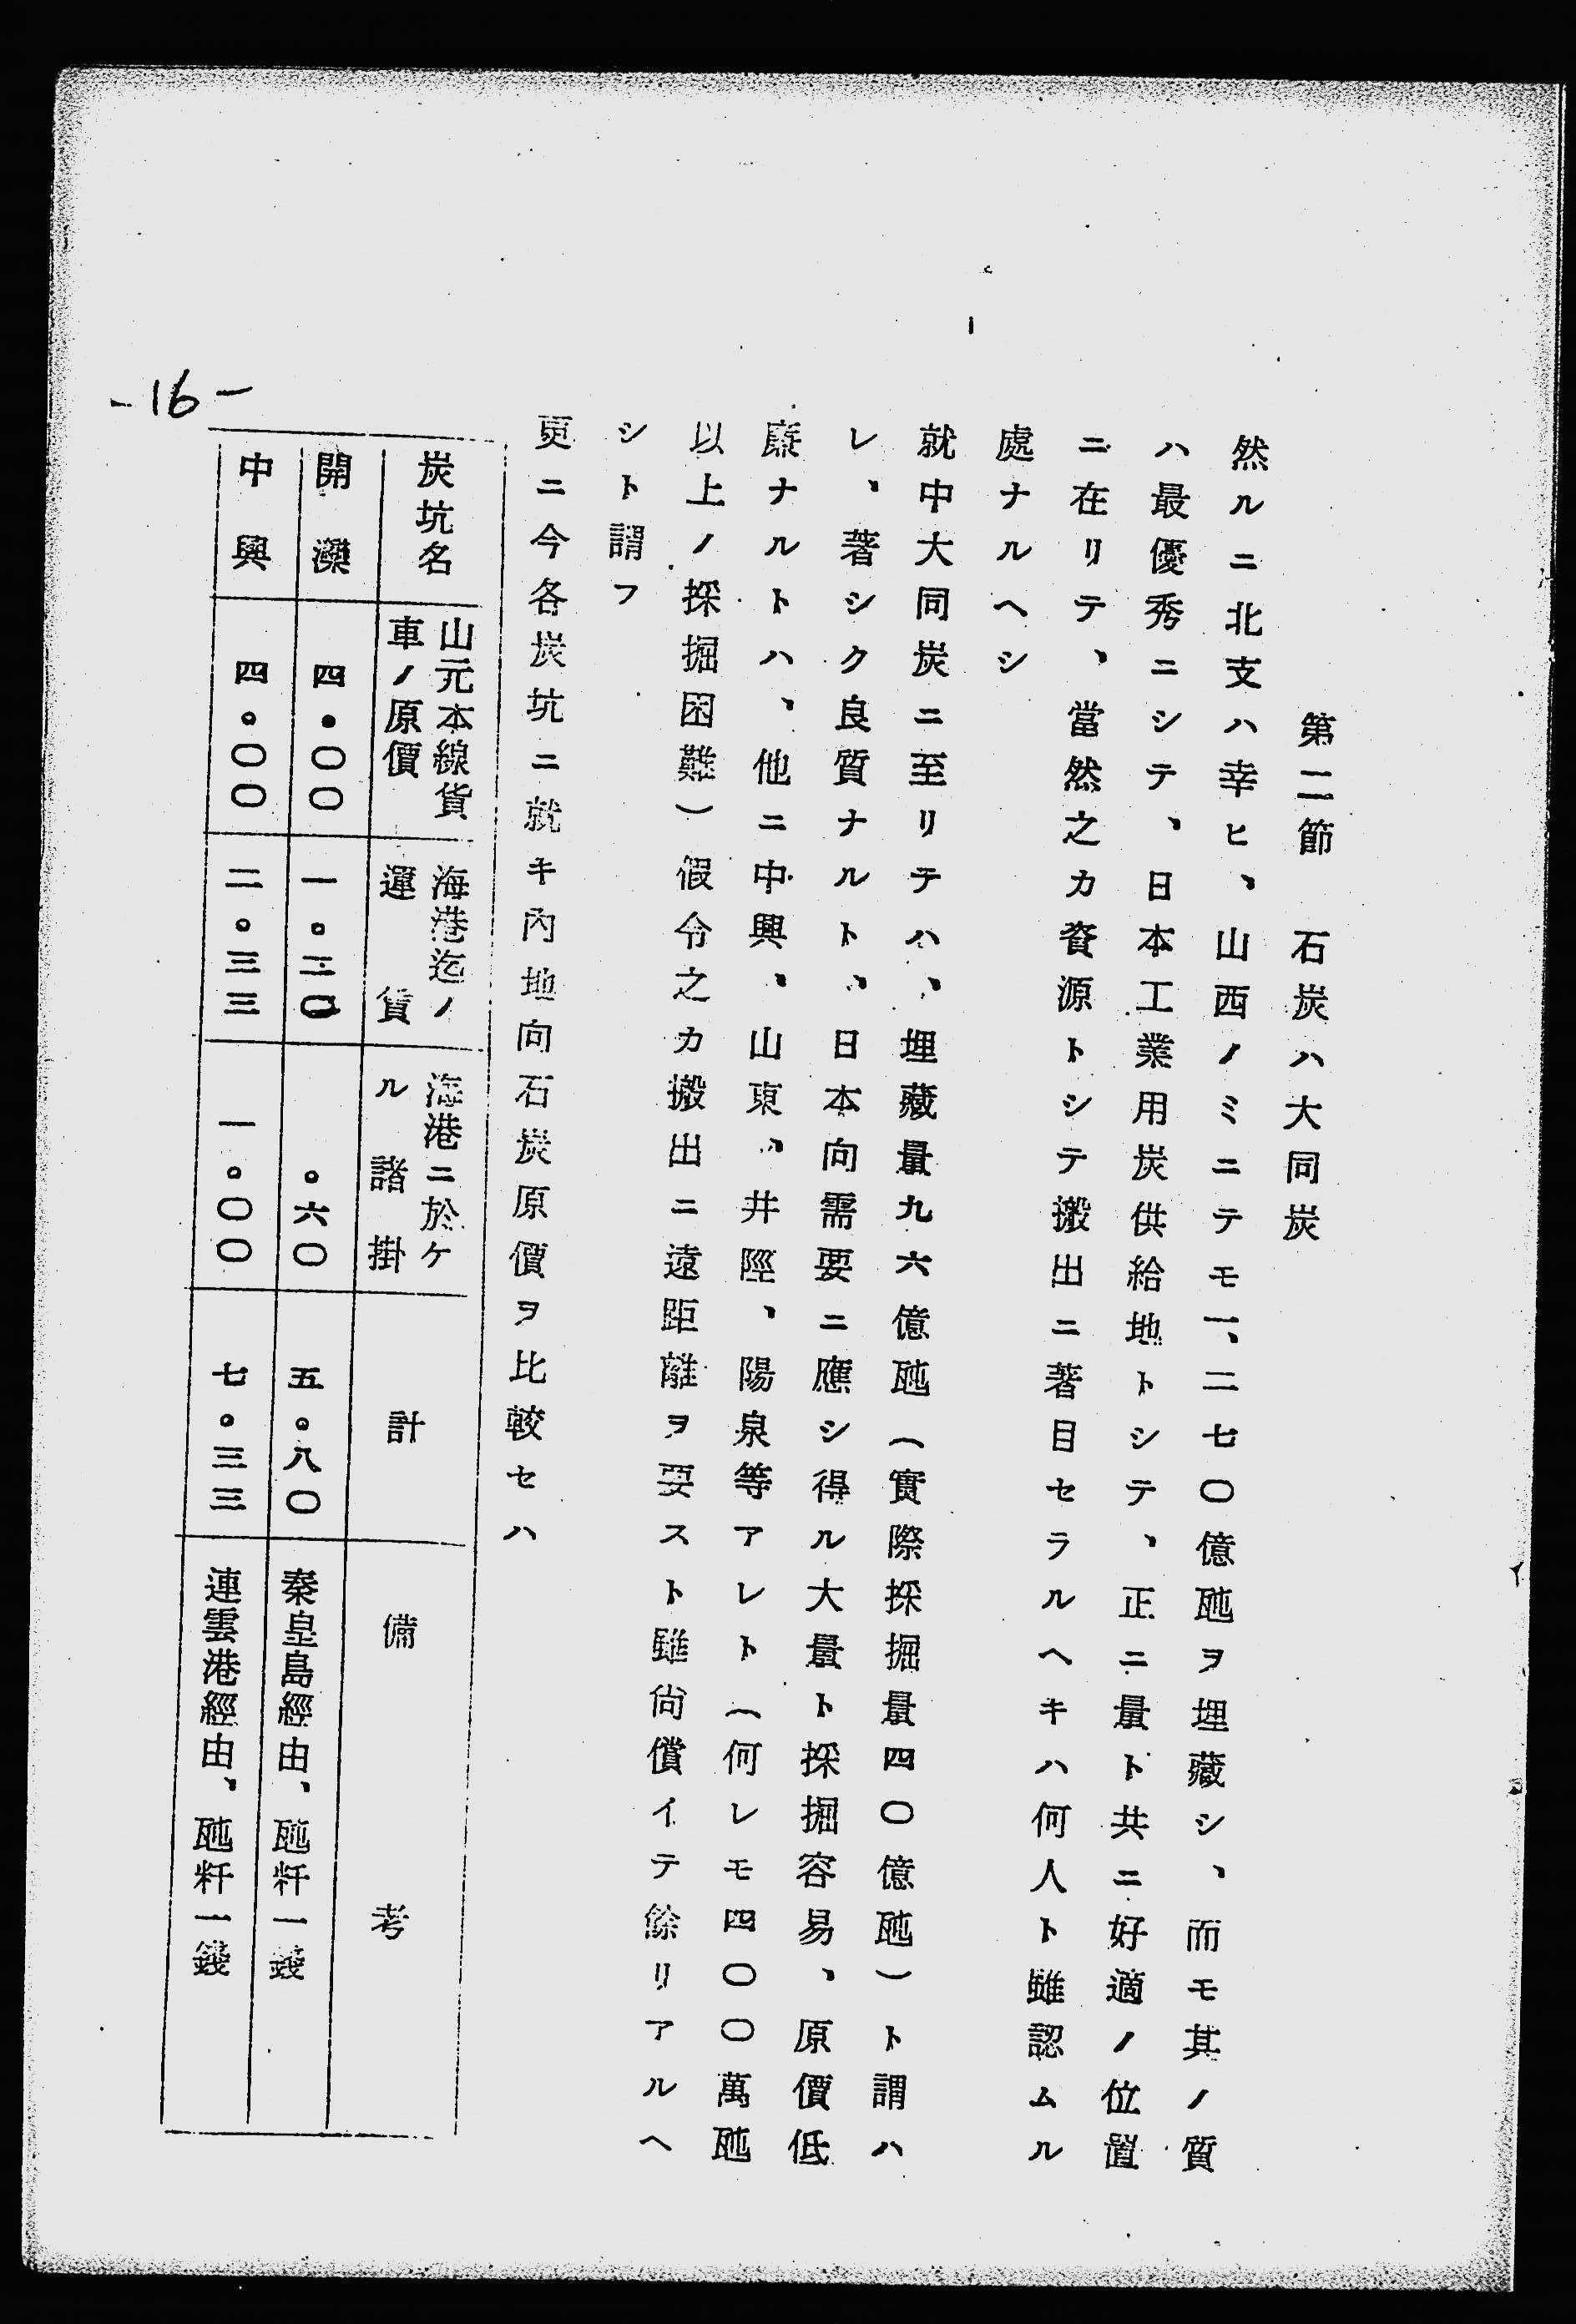 第二節　石炭ハ大同炭
然ルニ北支ハ幸ヒ、山西ノミニテモ一、二七〇億瓲ヲ埋藏シ、而モ其ノ質
ハ最優秀ニシテ、日本工業用炭供給地トシテ、正ニ量ト共ニ好適ノ位置
ニ在リテ、當然之カ資源トシテ搬出ニ著目セラルヘキハ何人ト雖認ムル
處ナルヘシ
就中大同炭ニ至リテハ、埋藏量九六億瓲（實際採掘量四〇億瓲）ト謂ハ
レ、著シク良質ナルト、日本向需要ニ應シ得ル大量ト採掘容易、原價低
廉ナルトハ、他ニ中興、山東、井陘、陽泉等アレト（何レモ四〇〇萬瓲
以上ノ採掘困難）假令之カ搬出ニ遠距離ヲ要スト雖尙償イテ餘リアルヘ
シト謂フ
更ニ今各炭坑ニ就キ內地向石炭原價ヲ比較セハ
炭坑名　山元本線貨車ノ原價　海港迄ノ運賃　海港ニ於ケル諸掛　計　備考
開灤　四・〇〇　一。二〇　。六〇　五。八〇　秦皇島經由、瓲粁一錢
中興　四。〇〇　二。三三　一。〇〇　七。三三　連雲港經由、瓲粁一錢
-16-